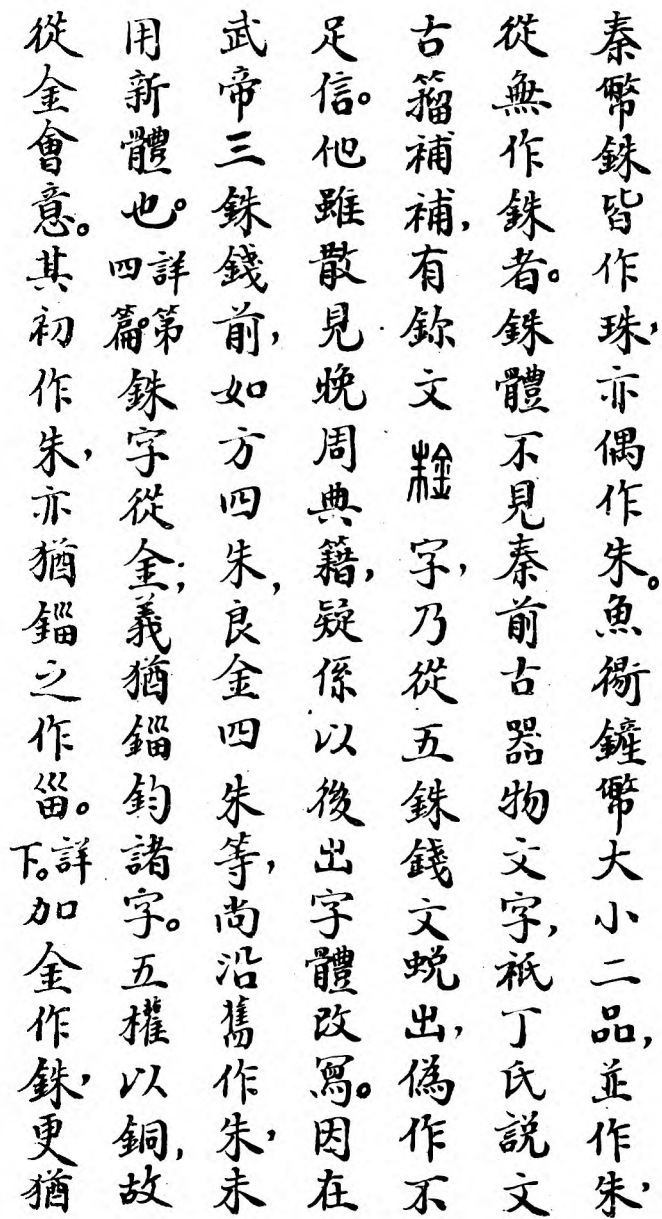 秦幣銖皆作珠，亦偶作朱。魚衖鏟幣大小二品，並作朱，
從無作銖者。銖體不見秦前古器物文字，祇丁氏說文
古籀補補，有鉨文字，乃從五銖錢文蛻出，偽作不
足信。他雖散見晚周典籍，疑係以後出字體改寫。因在
武帝三銖錢前，如方四朱，良金四朱等，尚沿舊作朱，未
用新體也。詳第四篇。銖字從金；義猶錙鈞諸字。五權以銅，故
從金會意。其初作朱，亦猶錙之作甾。詳下。加金作銖，更猶